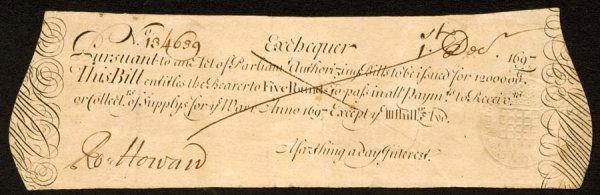 No 134639 Exchequer 1st Decr 1697
Pursuant to an Act of Parliamt Authorizing Bills to be issued for 1200000ll
This Bill entitles the Bearer to Five Pounds to pass in all Paymts to Receivrs
or Collectrs of Supplys for ye Warr Anno 1697 Except ye IIIshills
Ro: Howard A farthing a day Interest.